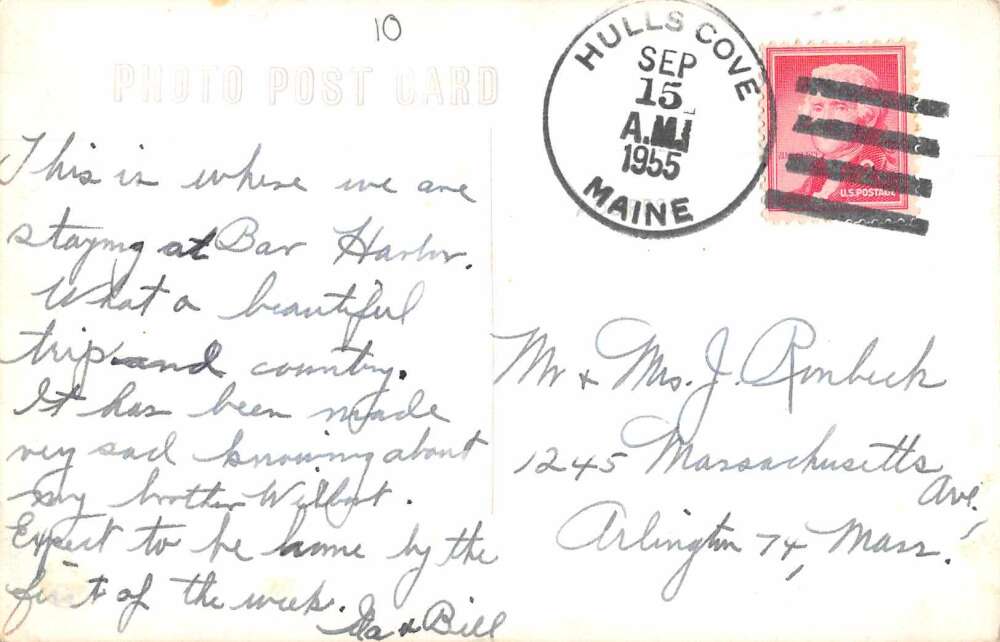 10
PHOTO POST CARD
HULLS COVE
SEP
15
A.M.
1955
MAINE
U.S. POSTAGE
This is where we are
staying at Bar Harbor.
What a beautiful
trip and country.
It has been made
very sad knowing about
my brother Wilbert.
Expect to be home by the
first of the week.
Ida & Bill
Mr & Mrs. J. Ronbeck
1245 Massachusetts
Ave,
Arlington 74, Mass.